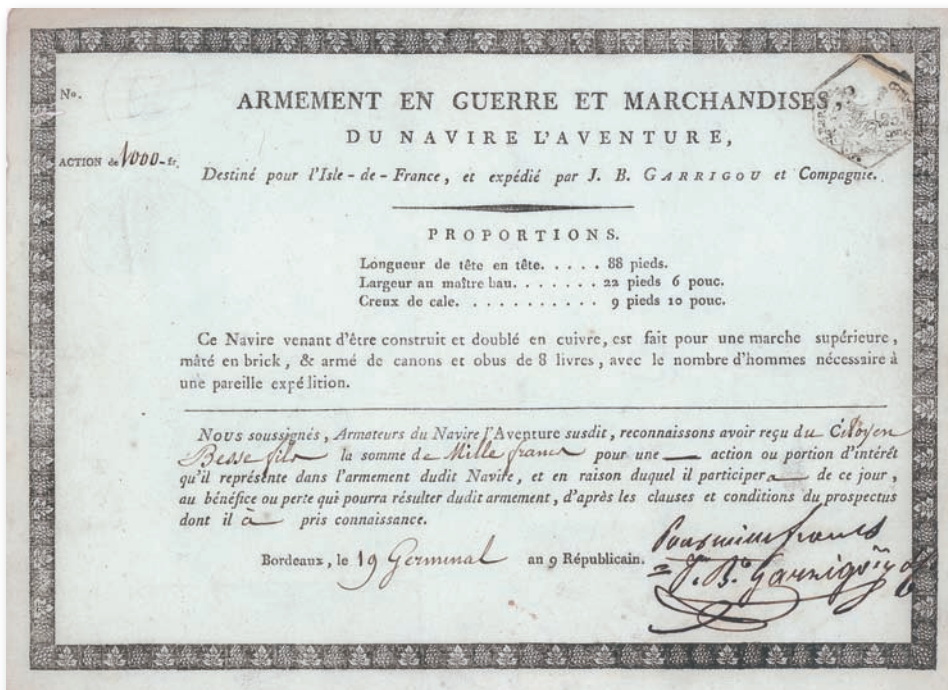 No.
ARMEMENT EN GUERRE ET MARCHANDISES,
DU NAVIRE L'AVENTURE,
ACTION de 1000 - fr.
Destiné pour l'Isle-de-France, et expédié par J. B. GARRIGOU et Compagnie.
PROPORTIONS.
Longueur de tête en tête. . . . . 88 pieds.
Largeur au maître bau. . . . . . . 22 pieds 6 pouc.
Creux de cale. . . . . . . . . . . 9 pieds 10 pouc.
Ce Navire venant d'être construit et doublé en cuivre, est fait pour une marche supérieure,
mâté en brick, & armé de canons et obus de 8 livres, avec le nombre d'hommes nécessaire à
une pareille expédition.
Nous soussignés, Armateurs du Navire l'Aventure susdit, reconnaissons avoir reçu du Citoyen
Besse fils la somme de Mille francs pour une action ou portion d'intérêt
qu'il représente dans l'armement dudit Navire, et en raison duquel il participera de ce jour,
au bénéfice ou perte qui pourra résulter dudit armement, d'après les clauses et conditions du prospectus
dont il a pris connaissance.
Bordeaux, le 19 Germinal an 9 Républicain.
Pour mille francs
J. B. Garrigou